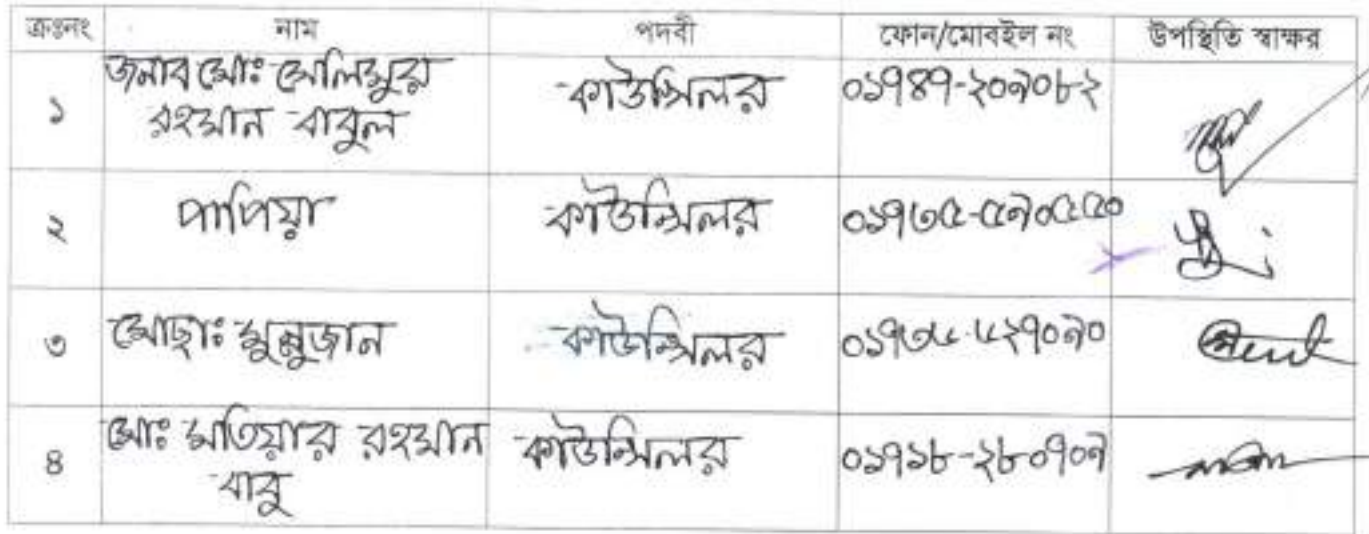 ক্রঃনং নাম পদবী ফোন/মোবাইল নং উপস্থিতি স্বাক্ষর
১ জনাব মোঃ সেলিমুর রহমান বাবুল কাউন্সিলর ০১৭৪৭-২০৯০৮২
২ পাপিয়া কাউন্সিলর ০১৭৩৫-৫৯০৫৫০
৩ মোছাঃ মুন্নুজান কাউন্সিলর
৪ মোঃ মতিয়ার রহমান বাবু কাউন্সিলর ০১৭১৮-২৮০৭০৯